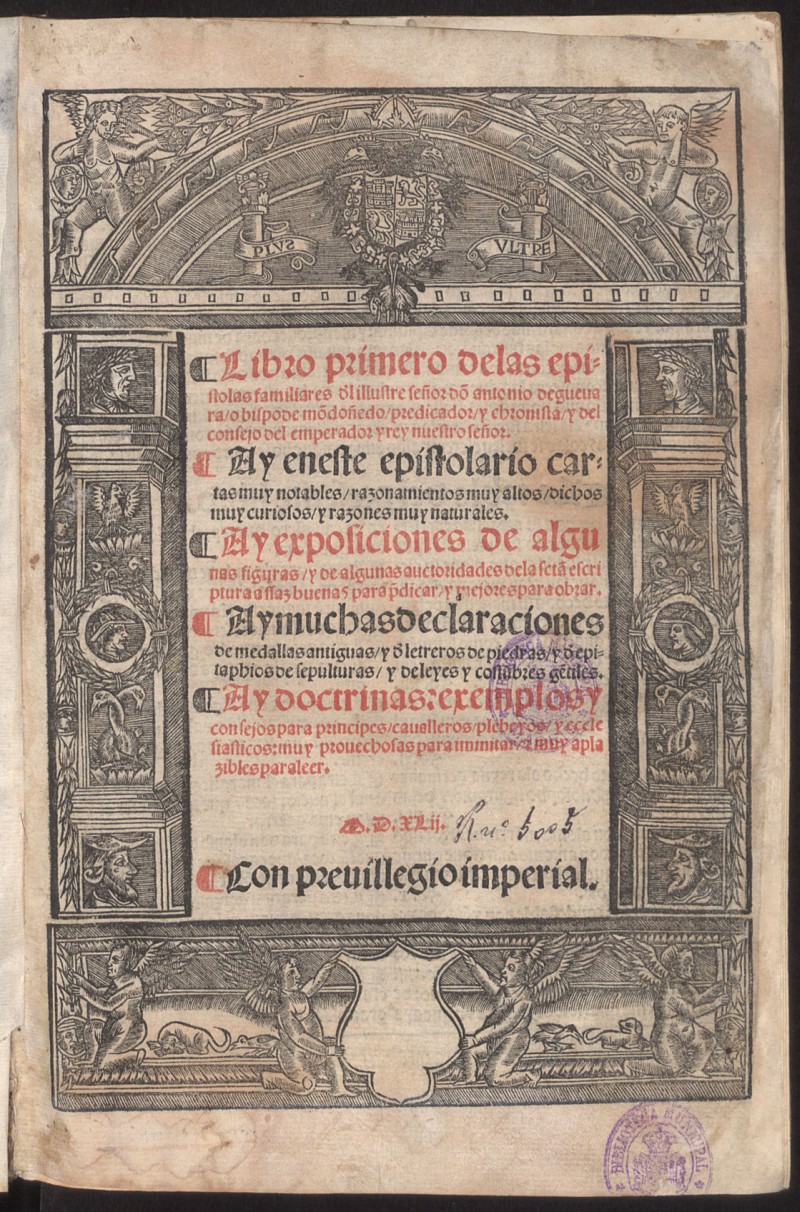 PLVS
VLTRE
¶ Libro primero delas epi-
stolas familiares d̃l illustre señor dõ antonio degueua
ra/obispo de mõdoñedo/predicador/y chronista/y del
consejo del emperador y rey nuestro señor.
¶ Ay eneste epistolario car-
tas muy notables/razonamientos muy altos/dichos
muy curiosos/y razones muy naturales.
¶ Ay exposiciones de algu
nas figuras/y de algunas auctoridades dela sctã escri
ptura assaz buenas para p̃dicar/y mejores para obrar.
¶ Ay muchas declaraciones
de medallas antiguas/y d̃ letreros de piedras/y d̃ epi-
taphios de sepulturas/y de leyes y costũbres gẽtiles.
¶ Ay doctrinas: exemplos y
consejos para principes/caualleros/plebeyos/y eccle
siasticos: muy prouechosas para immitar/⁊ muy apla
zibles para leer.
M.D.XLij. R. nº 5005
¶ Con preuillegio imperial.
BIBLIOTECA MUNICIPAL